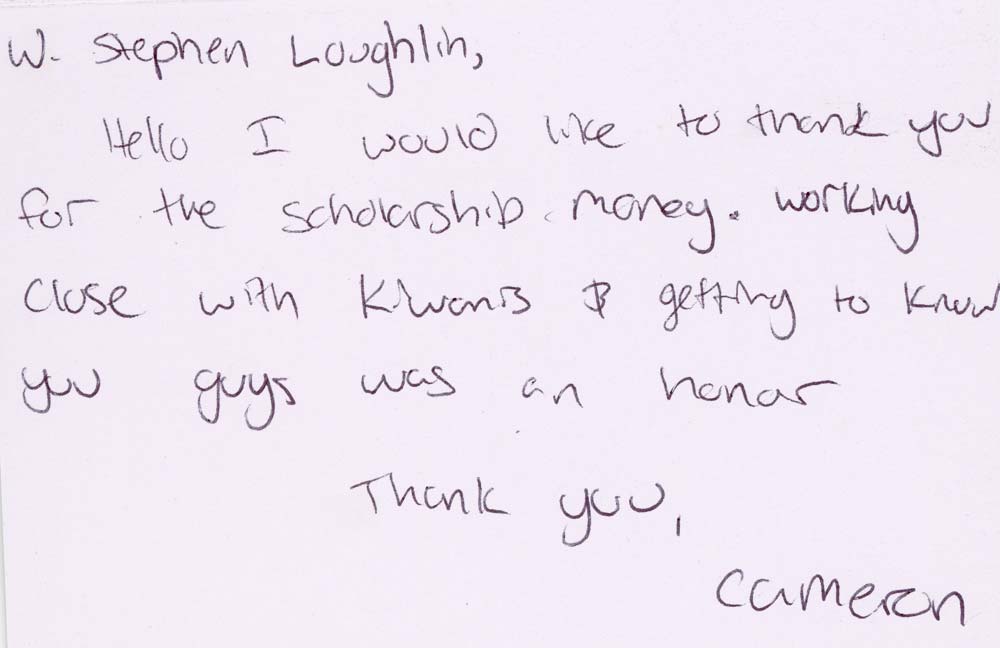 W. Stephen Loughlin,
Hello I would like to thank you
for the scholarship money. working
close with Kiwanis & getting to know
you guys was an honor
Thank you,
Cameron